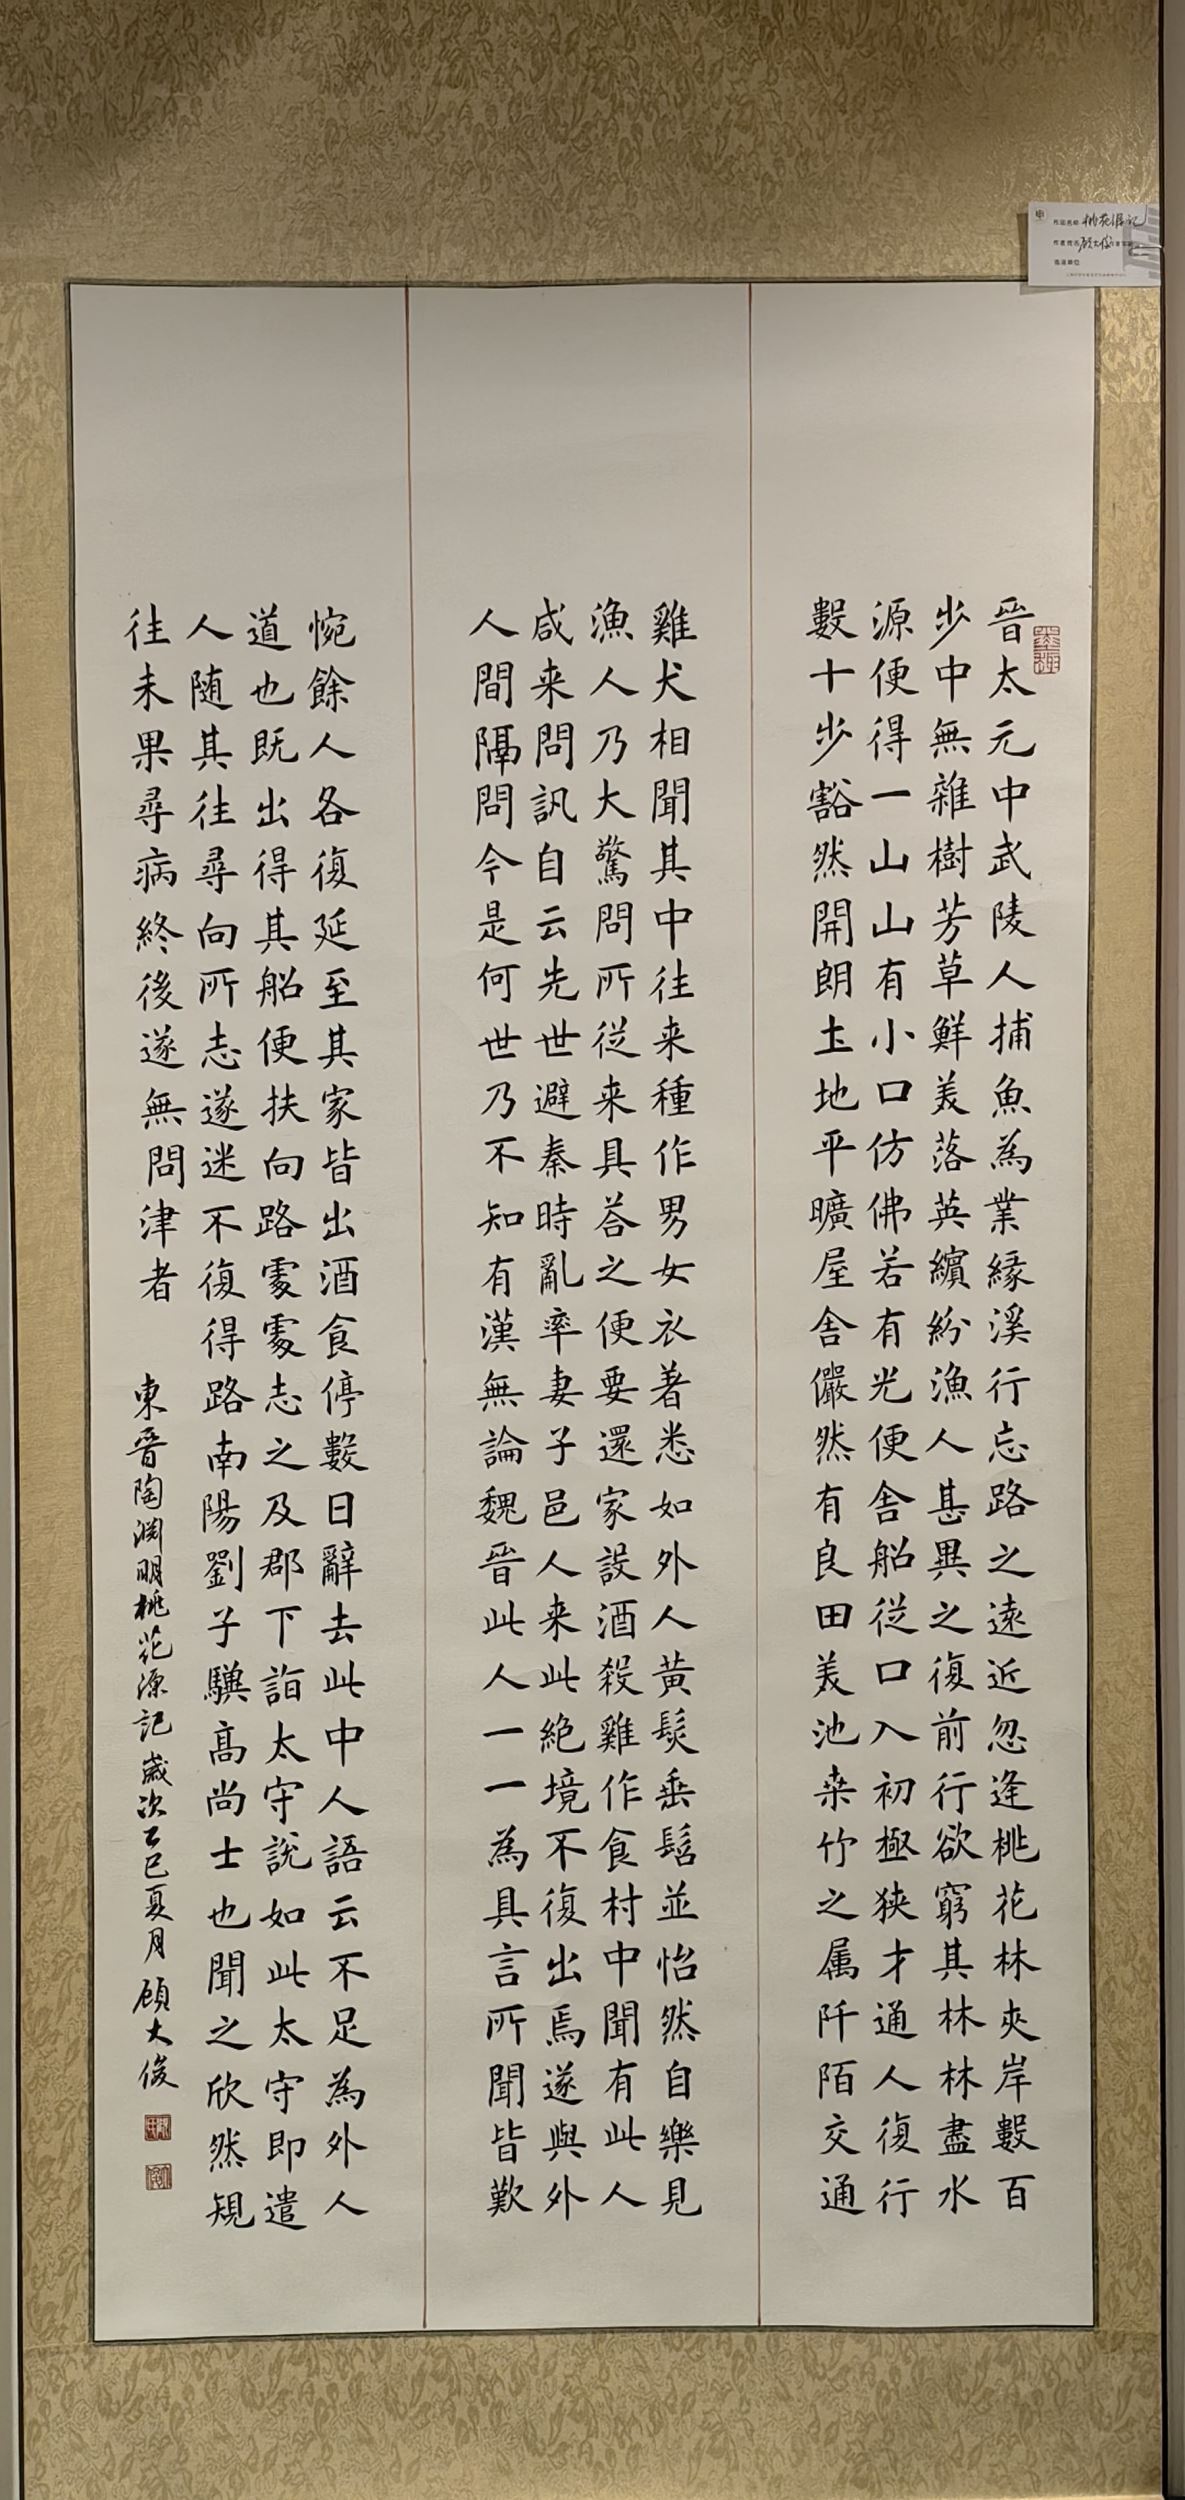 晉太元中武陵人捕魚為業緣溪行忘路之遠近忽逢桃花林夾岸數百
步中無雜樹芳草鮮美落英繽紛漁人甚異之復前行欲窮其林林盡水
源便得一山山有小口仿佛若有光便舍船從口入初極狹才通人復行
數十步豁然開朗土地平曠屋舍儼然有良田美池桒竹之属阡陌交通
雞犬相聞其中往来種作男女衣著悉如外人黃髮垂髫並怡然自樂見
漁人乃大驚問所從来具荅之便要還家設酒殺雞作食村中聞有此人
咸来問訊自云先世避秦時亂率妻子邑人来此絶境不復出焉遂與外
人間隔問今是何世乃不知有漢無論魏晉此人一一為具言所聞皆歎
惋餘人各復延至其家皆出酒食停數日辭去此中人語云不足為外人
道也既出得其船便扶向路處處志之及郡下詣太守說如此太守即遣
人随其往尋向所志遂迷不復得路南陽劉子驥高尚士也聞之欣然規
往未果尋病終後遂無問津者
東晉陶淵明桃花源記歲次乙巳夏月顧大俊
作品名稱 桃花源記
作者姓名 顾大俊